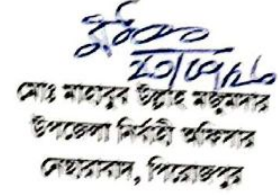 ২০/০৭/২৬
মোঃ মাহাবুব উল্লাহ মজুমদার
উপজেলা নির্বাহী অফিসার
নেছারাবাদ, পিরোজপুর